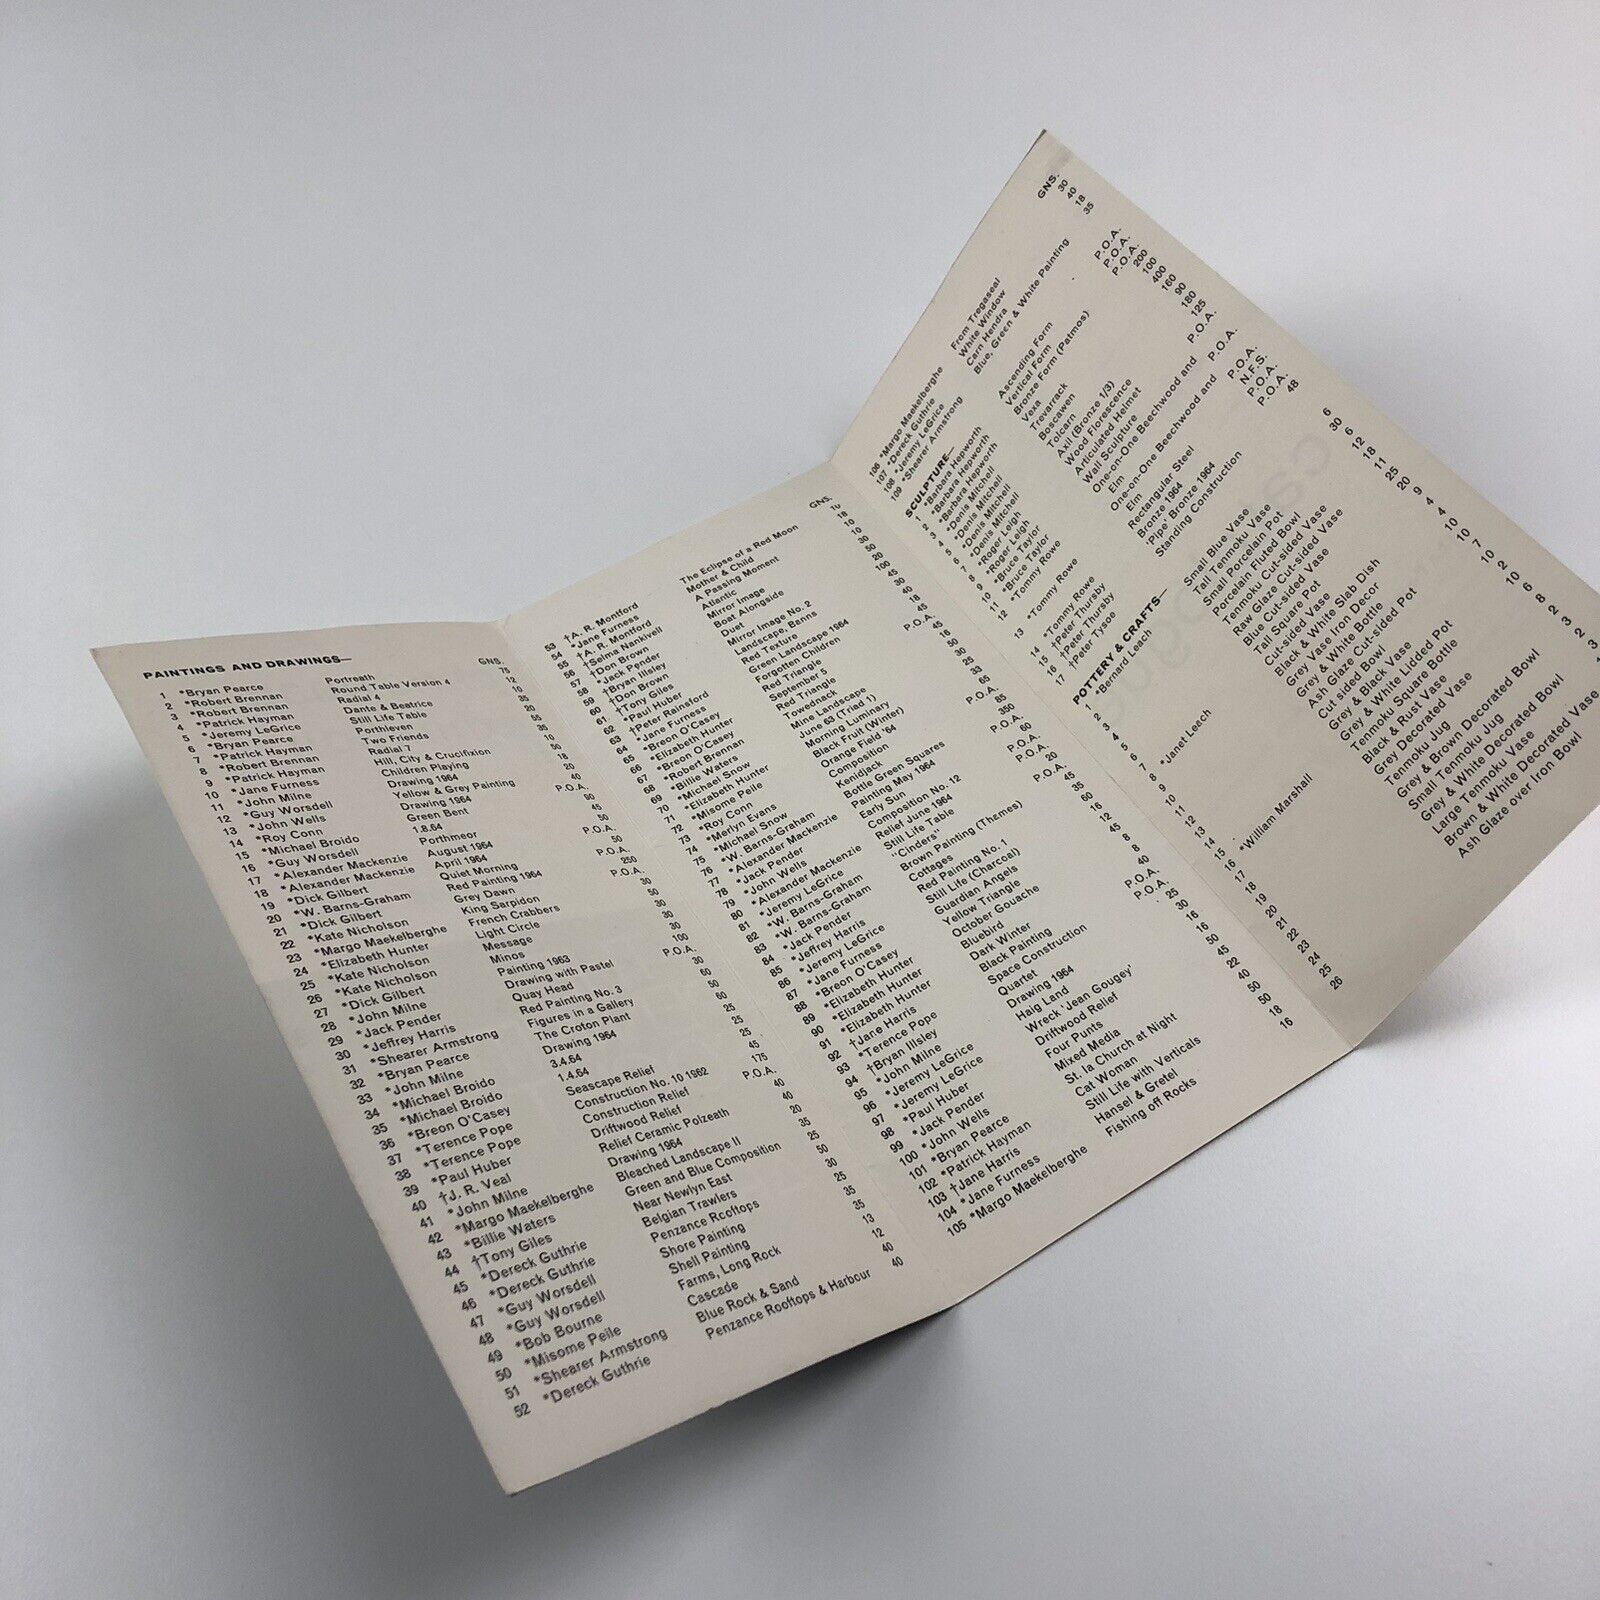 PAINTINGS AND DRAWINGS—
GNS.
1 *Bryan Pearce
2 *Robert Brennan
3 *Robert Brennan
4 *Patrick Hayman
5 *Jeremy LeGrice
6 *Bryan Pearce
7 *Patrick Hayman
8 *Robert Brennan
9 *Patrick Hayman
10 *Jane Furness
11 *John Milne
12 *Guy Worsdell
13 *John Wells
14 *Roy Conn
15 *Michael Broido
16 *Guy Worsdell
17 *Alexander Mackenzie
18 *Alexander Mackenzie
19 *Dick Gilbert
20 *W. Barns-Graham
21 *Dick Gilbert
22 *Kate Nicholson
23 *Margo Maekelberghe
24 *Elizabeth Hunter
25 *Kate Nicholson
26 *Kate Nicholson
27 *Dick Gilbert
28 *John Milne
29 *Jack Pender
30 *Jeffrey Harris
31 *Shearer Armstrong
32 *Bryan Pearce
33 *John Milne
34 *Michael Broido
35 *Michael Broido
36 *Breon O'Casey
37 *Terence Pope
38 *Terence Pope
39 *Paul Huber
40 †J. R. Veal
41 *John Milne
42 *Margo Maekelberghe
43 *Billie Waters
44 †Tony Giles
45 *Dereck Guthrie
46 *Dereck Guthrie
47 *Guy Worsdell
48 *Guy Worsdell
49 *Bob Bourne
50 *Misome Peile
51 *Shearer Armstrong
52 *Dereck Guthrie
Portreath
Round Table Version 4
Radial 4
Dante & Beatrice
Still Life Table
Porthleven
Two Friends
Radial 7
Hill, City & Crucifixion
Children Playing
Drawing 1964
Yellow & Grey Painting
Drawing 1964
Green Bent
1.8.64
Porthmeor
August 1964
April 1964
Quiet Morning
Red Painting 1964
Grey Dawn
King Sarpidon
French Crabbers
Light Circle
Message
Minos
Painting 1963
Drawing with Pastel
Quay Head
Red Painting No. 3
Figures in a Gallery
The Croton Plant
Drawing 1964
3.4.64
1.4.64
Seascape Relief
Construction No. 10 1962
Construction Relief
Driftwood Relief
Relief Ceramic Polzeath
Drawing 1964
Bleached Landscape II
Green and Blue Composition
Near Newlyn East
Belgian Trawlers
Penzance Rooftops
Shore Painting
Shell Painting
Farms, Long Rock
Cascade
Blue Rock & Sand
Penzance Rooftops & Harbour
75
12
10
35
20
55
35
10
50
18
20
40
P.O.A.
90
45
50
P.O.A.
50
P.O.A.
250
P.O.A.
30
50
30
30
100
P.O.A.
30
60
50
60
25
25
25
45
175
P.O.A.
40
40
20
35
25
50
30
25
35
35
13
12
40
40
GNS.
53 †A. R. Montford
54 *Jane Furness
55 †A. R. Montford
56 †Selma Nankivell
57 †Don Brown
58 *Jack Pender
59 †Bryan Illsley
60 †Don Brown
61 †Tony Giles
62 *Paul Huber
63 †Peter Rainsford
64 *Jane Furness
65 *Breon O'Casey
66 *Elizabeth Hunter
67 *Breon O'Casey
68 *Robert Brennan
69 *Billie Waters
70 *Michael Snow
71 *Elizabeth Hunter
72 *Misome Peile
73 *Roy Conn
74 *Merlyn Evans
75 *Michael Snow
76 *W. Barns-Graham
77 *Alexander Mackenzie
78 *Jack Pender
79 *John Wells
80 *Alexander Mackenzie
81 *Jeremy LeGrice
82 *W. Barns-Graham
83 *W. Barns-Graham
84 *Jack Pender
85 *Jeffrey Harris
86 *Jeremy LeGrice
87 *Jane Furness
88 *Breon O'Casey
89 *Elizabeth Hunter
90 *Elizabeth Hunter
91 *Elizabeth Hunter
92 †Jane Harris
93 *Terence Pope
94 †Bryan Illsley
95 *John Milne
96 *Jeremy LeGrice
97 *Jeremy LeGrice
98 *Paul Huber
99 *Jack Pender
100 *John Wells
101 *Bryan Pearce
102 *Patrick Hayman
103 †Jane Harris
104 *Jane Furness
105 *Margo Maekelberghe
The Eclipse of a Red Moon
Mother & Child
A Passing Moment
Atlantic
Mirror Image
Boat Alongside
Duet
Mirror Image No. 2
Landscape, Banns
Red Texture
Green Landscape 1964
Forgotten Children
Red Triangle
September 5
Red Triangle
Towednack
Mine Landscape
June 63 (Triad 1)
Morning Luminary
Black Fruit (Winter)
Orange Field '64
Composition
Kenidjack
Bottle Green Squares
Painting May 1964
Early Sun
Composition No. 12
Relief June 1964
Still Life Table
"Cinders"
Brown Painting (Themes)
Cottages
Red Painting No. 1
Still Life (Charcoal)
Guardian Angels
Yellow Triangle
October Gouache
Bluebird
Dark Winter
Black Painting
Space Construction
Quartet
Drawing 1964
Haig Land
Wreck 'Jean Gougey'
Driftwood Relief
Four Punts
Mixed Media
St. Ia Church at Night
Cat Woman
Still Life with Verticals
Hansel & Gretel
Fishing off Rocks
18
10
10
30
50
20
100
45
30
40
18
45
P.O.A.
45
18
50
30
25
33
65
65
85
P.O.A.
350
60
P.O.A.
P.O.A.
20
P.O.A.
45
35
60
50
16
12
45
8
8
40
P.O.A.
P.O.A.
25
30
16
16
50
45
22
40
50
50
18
16
GNS.
106 *Margo Maekelberghe
107 *Dereck Guthrie
108 *Jeremy LeGrice
109 *Shearer Armstrong
From Tregaseal
White Window
Carn Hendra
Blue, Green & White Painting
30
40
18
35
SCULPTURE—
1 *Barbara Hepworth
2 *Barbara Hepworth
3 *Barbara Hepworth
4 *Denis Mitchell
5 *Denis Mitchell
6 *Denis Mitchell
7 *Roger Leigh
8 *Roger Leigh
9 *Bruce Taylor
10 *Bruce Taylor
11 *Tommy Rowe
12 *Tommy Rowe
13 *Tommy Rowe
14 †Peter Thursby
15 †Peter Thursby
16 †Peter Tysoe
17
Ascending Form
Vertical Form
Bronze Form (Patmos)
Vexa
Trevarrack
Boscawen
Tolcarn
Axil (Bronze 1/3)
Wood Florescence
Articulated Helmet
Wall Sculpture
One-on-One Beechwood and
Elm
One-on-One Beechwood and
Elm
Rectangular Steel
Bronze 1964
'Pipe' Bronze 1964
Standing Construction
P.O.A.
P.O.A.
P.O.A.
200
100
400
160
90
180
125
P.O.A.
P.O.A.
P.O.A.
N.F.S.
P.O.A.
P.O.A.
48
POTTERY & CRAFTS—
1 *Bernard Leach
2
3
4
5
6
7 *Janet Leach
8
9
10
11
12
13
14
15 *William Marshall
16
17
18
19
20
21
22
23
24
25
26
Small Blue Vase
Tall Tenmoku Vase
Small Porcelain Pot
Porcelain Fluted Bowl
Tenmoku Cut-sided Vase
Raw Glaze Cut-sided Vase
Blue Cut-sided Vase
Tall Square Pot
Cut-sided Vase
Black & White Slab Dish
Grey Vase Iron Decor
Grey & White Bottle
Ash Glaze Cut-sided Pot
Cut sided Bowl
Grey & Black Vase
Grey & White Lidded Pot
Tenmoku Square Bottle
Black & Rust Vase
Grey Decorated Vase
Tenmoku Jug
Grey & Brown Decorated Bowl
Small Tenmoku Jug
Grey & White Decorated Bowl
Large Tenmoku Vase
Brown & White Decorated Vase
Ash Glaze over Iron Bowl
6
30
6
12
18
11
25
20
9
4
4
10
10
7
2
10
6
8
2
3
2
3